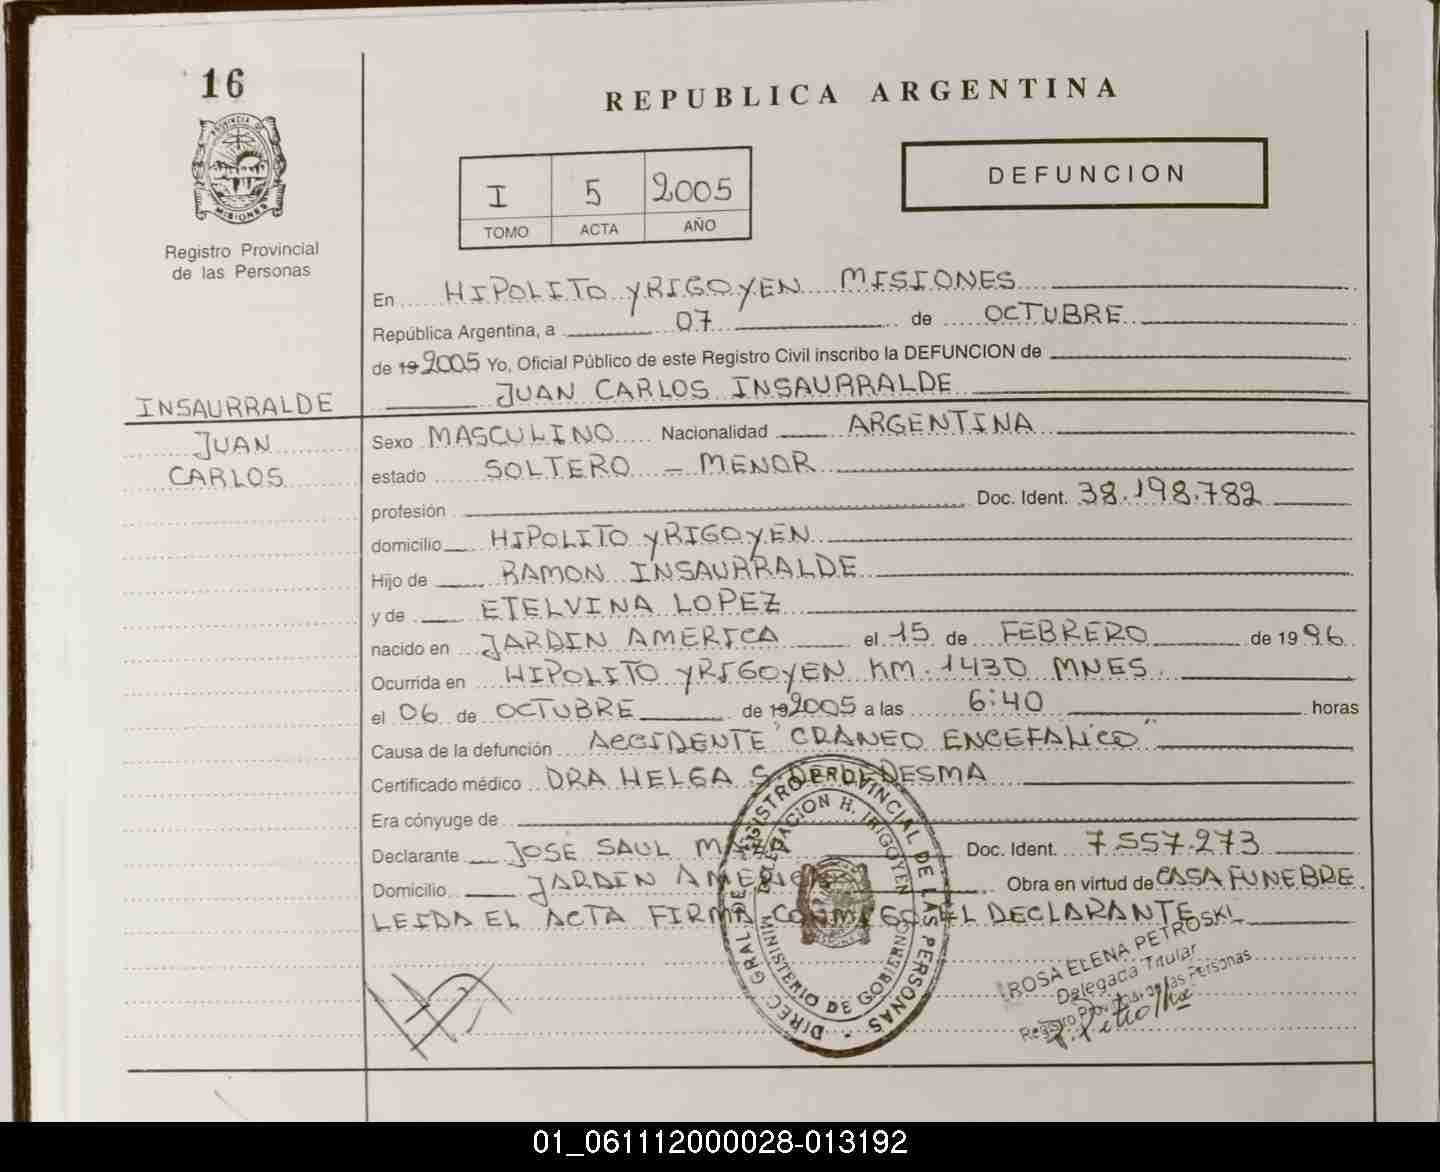 16
PROVINCIA DE
MISIONES
Registro Provincial
de las Personas
REPUBLICA ARGENTINA
I 5 2005
TOMO ACTA AÑO
DEFUNCION
En HIPOLITO YRIGOYEN MISIONES
República Argentina, a 07 de OCTUBRE
de 19 2005 Yo, Oficial Público de este Registro Civil inscribo la DEFUNCION de
JUAN CARLOS INSAURRALDE
INSAURRALDE
JUAN
CARLOS
Sexo MASCULINO Nacionalidad ARGENTINA
estado SOLTERO - MENOR
profesión Doc. Ident. 38.198.782
domicilio HIPOLITO YRIGOYEN
Hijo de RAMON INSAURRALDE
y de ETELVINA LOPEZ
nacido en JARDIN AMERICA el 15 de FEBRERO de 1996
Ocurrida en HIPOLITO YRIGOYEN KM. 1430 MNES.
el 06 de OCTUBRE de 19 2005 a las 6:40 horas
Causa de la defunción ACCIDENTE "CRANEO ENCEFALICO"
Certificado médico DRA HELGA S. DE LEDESMA
Era cónyuge de
Declarante JOSE SAUL Doc. Ident. 7.557.273
Domicilio JARDIN AMERICA Obra en virtud de CASA FUNEBRE
LEIDA EL ACTA FIRMA CONMIGO EL DECLARANTE
DIREC. GRAL. DE REGISTRO PROVINCIAL DE LAS PERSONAS
DELEGACION H. IRIGOYEN
MINISTERIO DE GOBIERNO
ROSA ELENA PETROSKI
Delegada Titular
Registro Provincial de las Personas
01_061112000028-013192